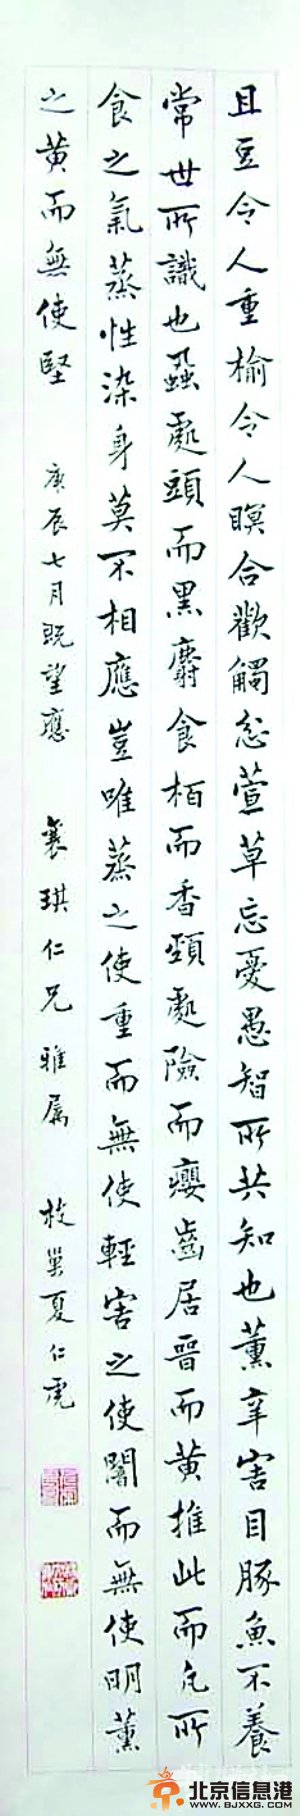 且豆令人重榆令人瞑合歡觸忿萱草忘憂愚智所共知也薰辛害目豚魚不養
常世所識也蝨處頭而黑麝食柏而香頸處險而癭齒居晉而黃推此而凡所
食之氣蒸性染身莫不相應豈唯蒸之使重而無使輕害之使闇而無使明薰
之黃而無使堅 庚辰七月既望應 襄琪仁兄雅属 枝巢夏仁虎
北京信息港
WWW.BJXXG.COM